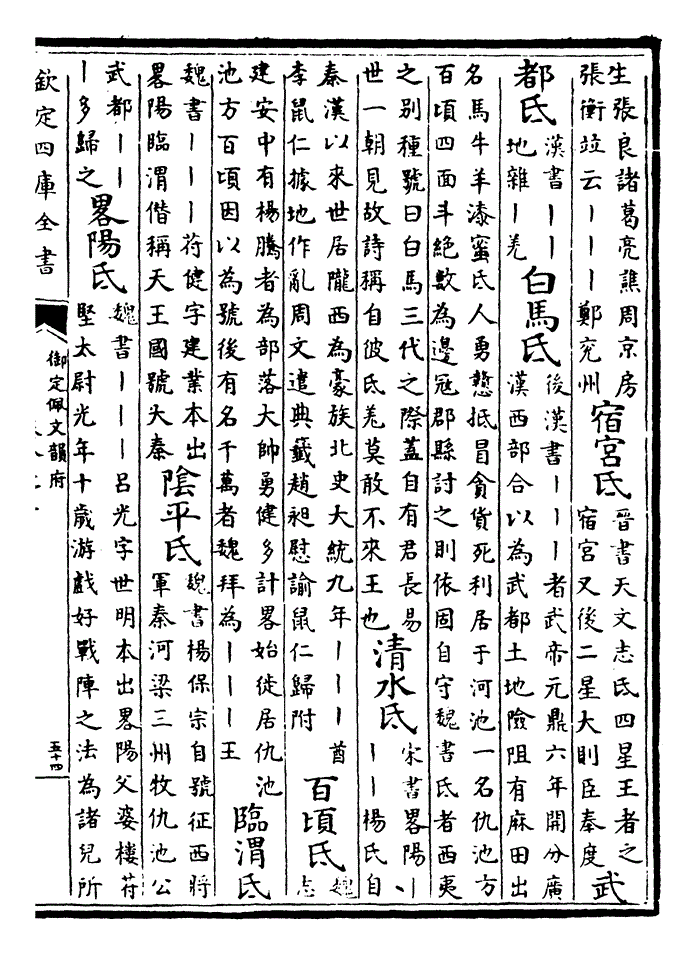 生張良諸葛亮譙周京房
張衡竝云丨丨丨鄭兖州
宿宮氐
晉書天文志氐四星王者之
宿宮又後二星大則臣奉度
武
都氐
漢書丨丨
地雜丨羌
白馬氐
後漢書丨丨丨者武帝元鼎六年開分廣
漢西部合以為武都土地險阻有麻田出
名馬牛羊漆蜜氐人勇戇抵冒貪貨死利居于河池一名仇池方
百頃四面斗絶數為邊冦郡縣討之則依固自守魏書氐者西夷
之别種號曰白馬三代之際蓋自有君長易
世一朝見故詩稱自彼氐羌莫敢不來王也
清水氐
宋書畧陽丶
丨丨楊氐自
秦漢以來世居隴西為豪族北史大統九年丨丨丨酋
李鼠仁據地作亂周文遣典籖趙昶慰諭鼠仁歸附
百頃氐
魏
志
建安中有楊騰者為部落大帥勇健多計畧始徙居仇池
池方百頃因以為號後有名千萬者魏拜為丨丨丨王
臨渭氐
魏書丨丨丨苻健字建業本出
畧陽臨渭僭稱天王國號大秦
隂平氐
魏書楊保宗自號征西將
軍秦河梁三州牧仇池公
武都丨丨
丨多歸之
畧陽氐
魏書丨丨丨呂光字世明本出畧陽父婆樓苻
堅太尉光年十歲游戲好戰陣之法為諸兒所
欽定四庫全書
御定佩文韻府
五十四